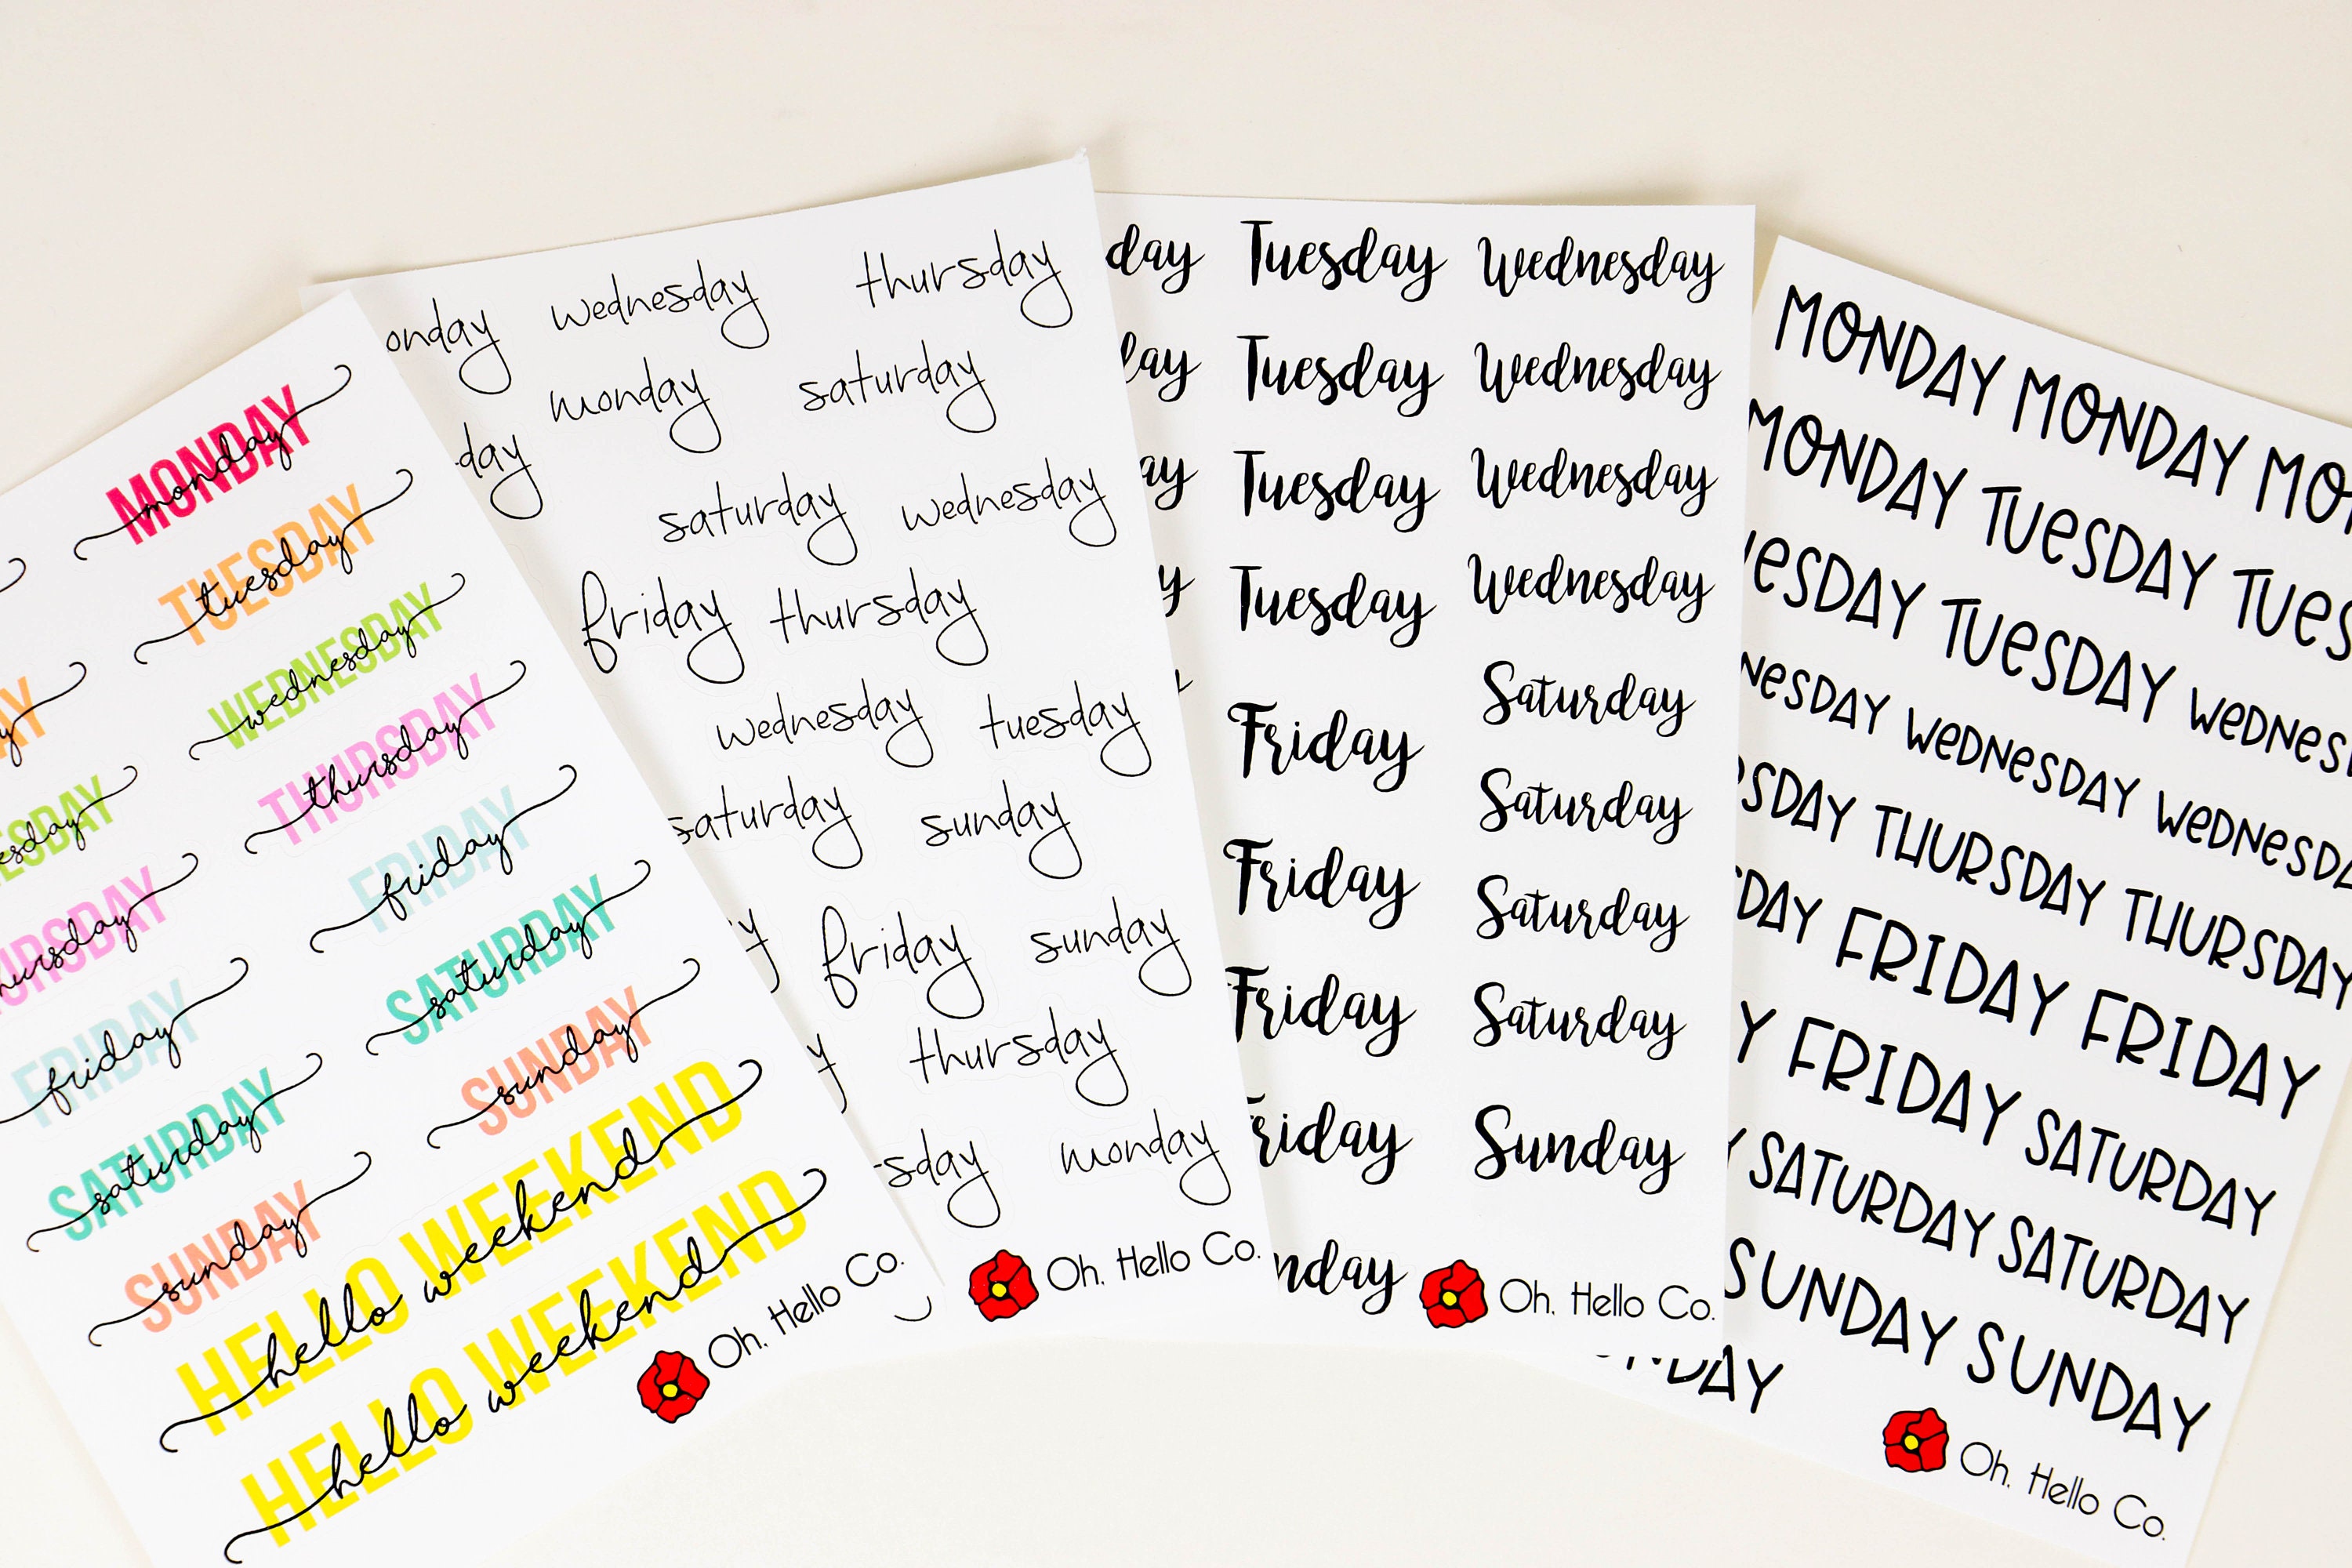 MONDAY monday
TUESDAY tuesday
WEDNESDAY wednesday
THURSDAY thursday
FRIDAY friday
SATURDAY saturday
SUNDAY sunday
FRIDAY friday
SATURDAY saturday
SUNDAY sunday
HELLO WEEKEND hello weekend
HELLO WEEKEND hello weekend
Oh, Hello Co.
onday wednesday thursday
monday saturday
day
saturday wednesday
friday thursday
wednesday tuesday
saturday sunday
friday sunday
thursday
sday monday
Oh, Hello Co.
day Tuesday Wednesday
lay Tuesday Wednesday
ay Tuesday Wednesday
y Tuesday Wednesday
Friday Saturday
Saturday
Friday Saturday
Friday Saturday
riday Sunday
nday
Oh, Hello Co.
MONDAY MONDAY MO
MONDAY TUeSDAY TUeS
eSDAY TUeSDAY WeDNeS
NeSDAY WeDNeSDAY WeDNeSDA
SDAY THURSDAY THURSDAY
DAY FRIDAY FRIDAY
Y FRIDAY SATURDAY
SATURDAY SATURDAY
SUNDAY SUNDAY
NDAY
Oh, Hello Co.